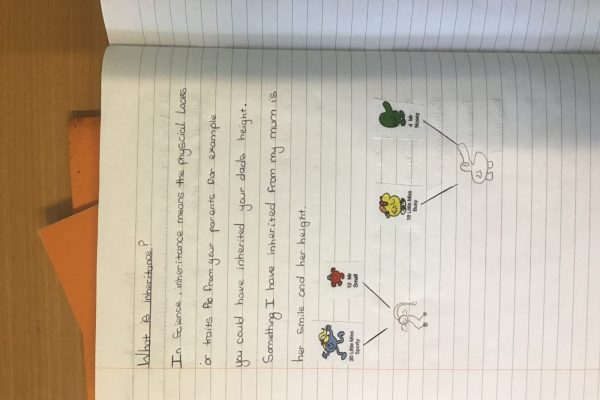 What is inheritance?
In Science, inheritance means the physcial looks
or traits from your parents for example
you could have inherited your dads height.
Something I have inherited from my mum is
her smile and her height.
30 Little Miss
Sporty
12 Mr
Small
19 Little Miss
Busy
4 Mr
Nosey